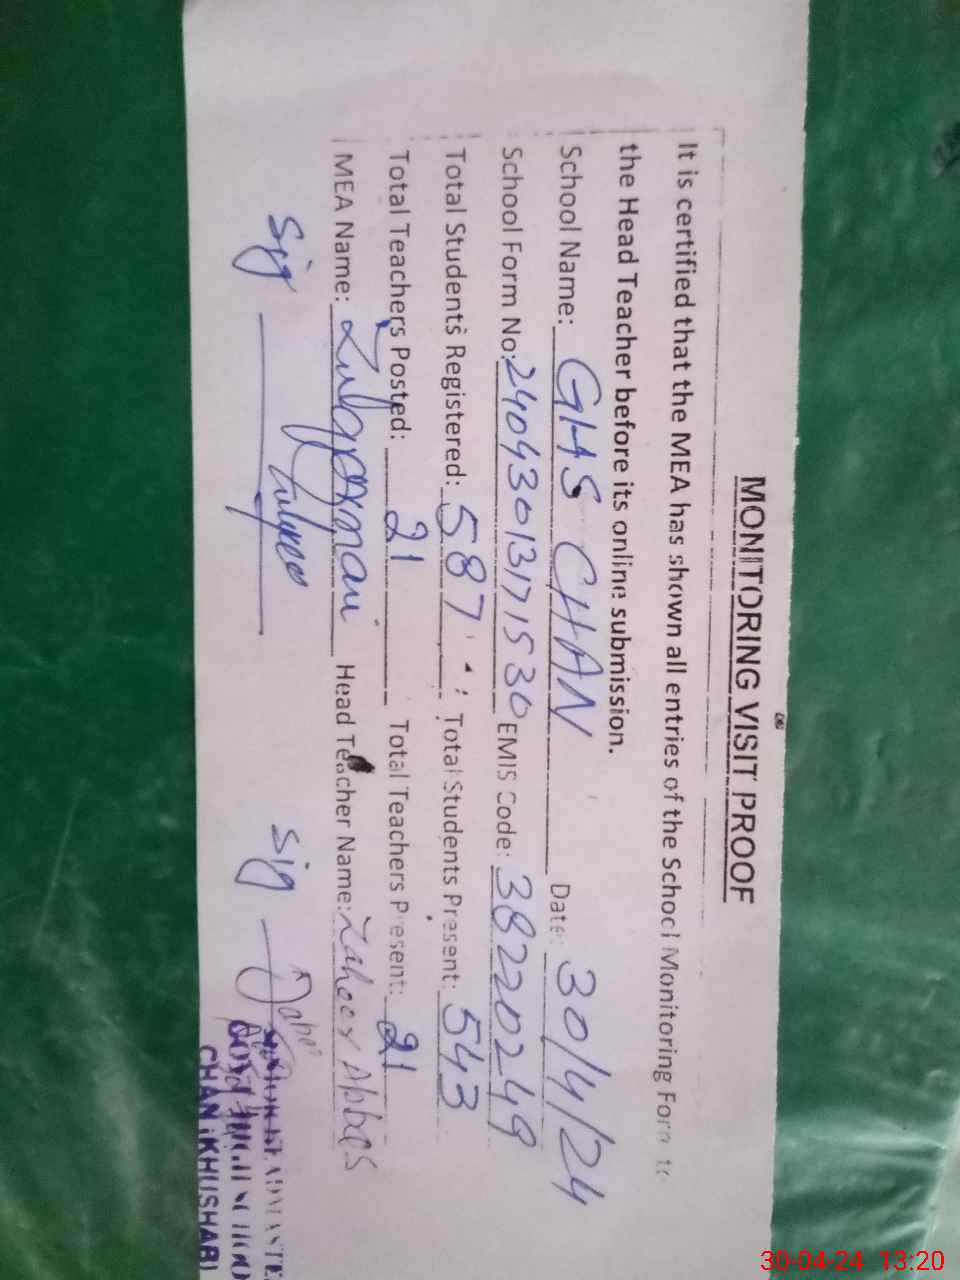 MONITORING VISIT PROOF
It is certified that the MEA has shown all entries of the School Monitoring Form to
the Head Teacher before its online submission.
School Name: GHS CHAN Date: 30/4/24
School Form No: 24043013171530 EMIS Code: 38220249
Total Students Registered: 587 Total Students Present: 543
Total Teachers Posted: 21 Total Teachers Present: 21
MEA Name: Zulqarnain Head Teacher Name: Zaheer Abbas
Sig Sig
SENIOR HEADMASTE
GOVT HIGH SCHOO
CHAN (KHUSHAB)
30-04-24 13:20